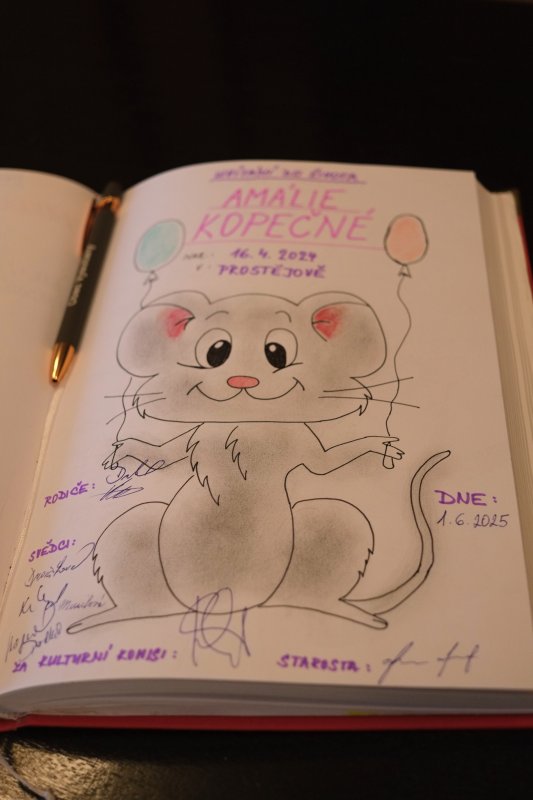 VÍTÁNÍ DO ŽIVOTA
AMÁLIE
KOPEČNÉ
NAR: 16.4.2024
V: PROSTĚJOVĚ
RODIČE:
DNE:
1.6.2025
SVĚDCI:
ZA KULTURNÍ KOMISI:
STAROSTA: